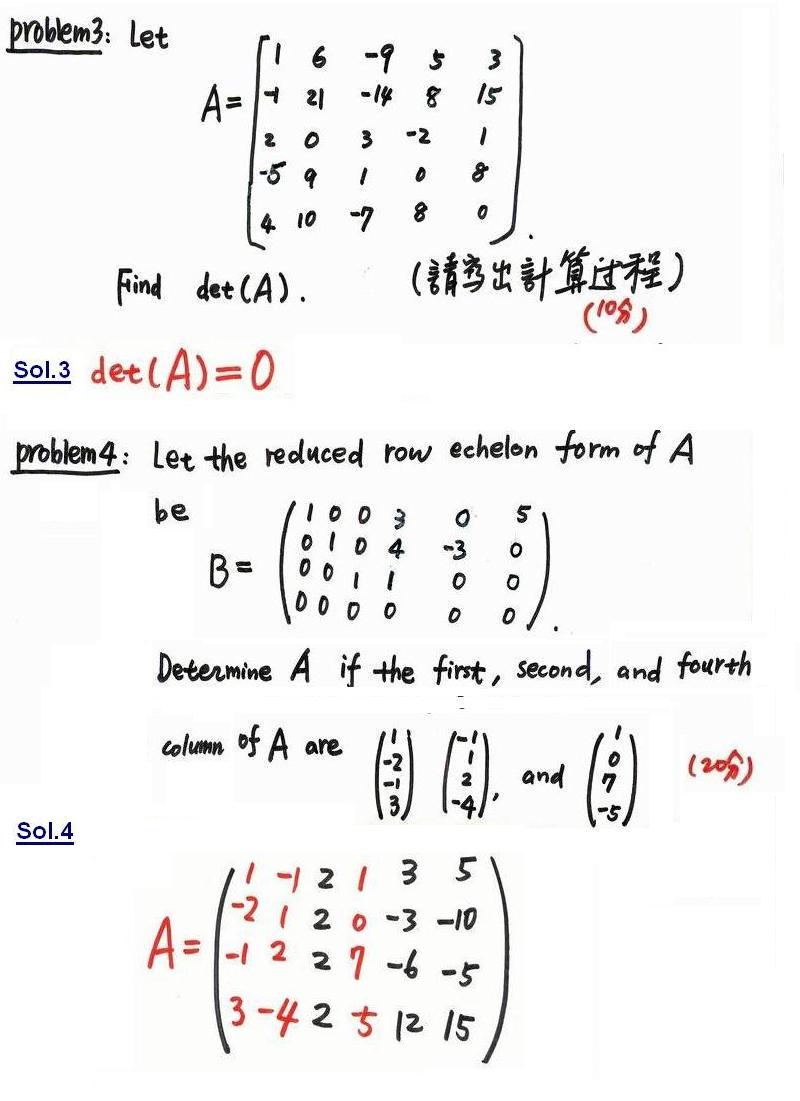 problem3: Let
A= [ 1 6 -9 5 3
-1 21 -14 8 15
2 0 3 -2 1
-5 9 1 0 8
4 10 -7 8 0 ].
Find det(A). (請寫出計算过程)
(10分)
Sol.3 det(A)=0
problem4: Let the reduced row echelon form of A
be
B= ( 1 0 0 3 0 5
0 1 0 4 -3 0
0 0 1 1 0 0
0 0 0 0 0 0 ).
Determine A if the first, second, and fourth
column of A are (1 -2 -1 3) (-1 1 2 -4), and (1 0 7 -5) (20分)
Sol.4
A= ( 1 -1 2 1 3 5
-2 1 2 0 -3 -10
-1 2 2 7 -6 -5
3 -4 2 5 12 15 )